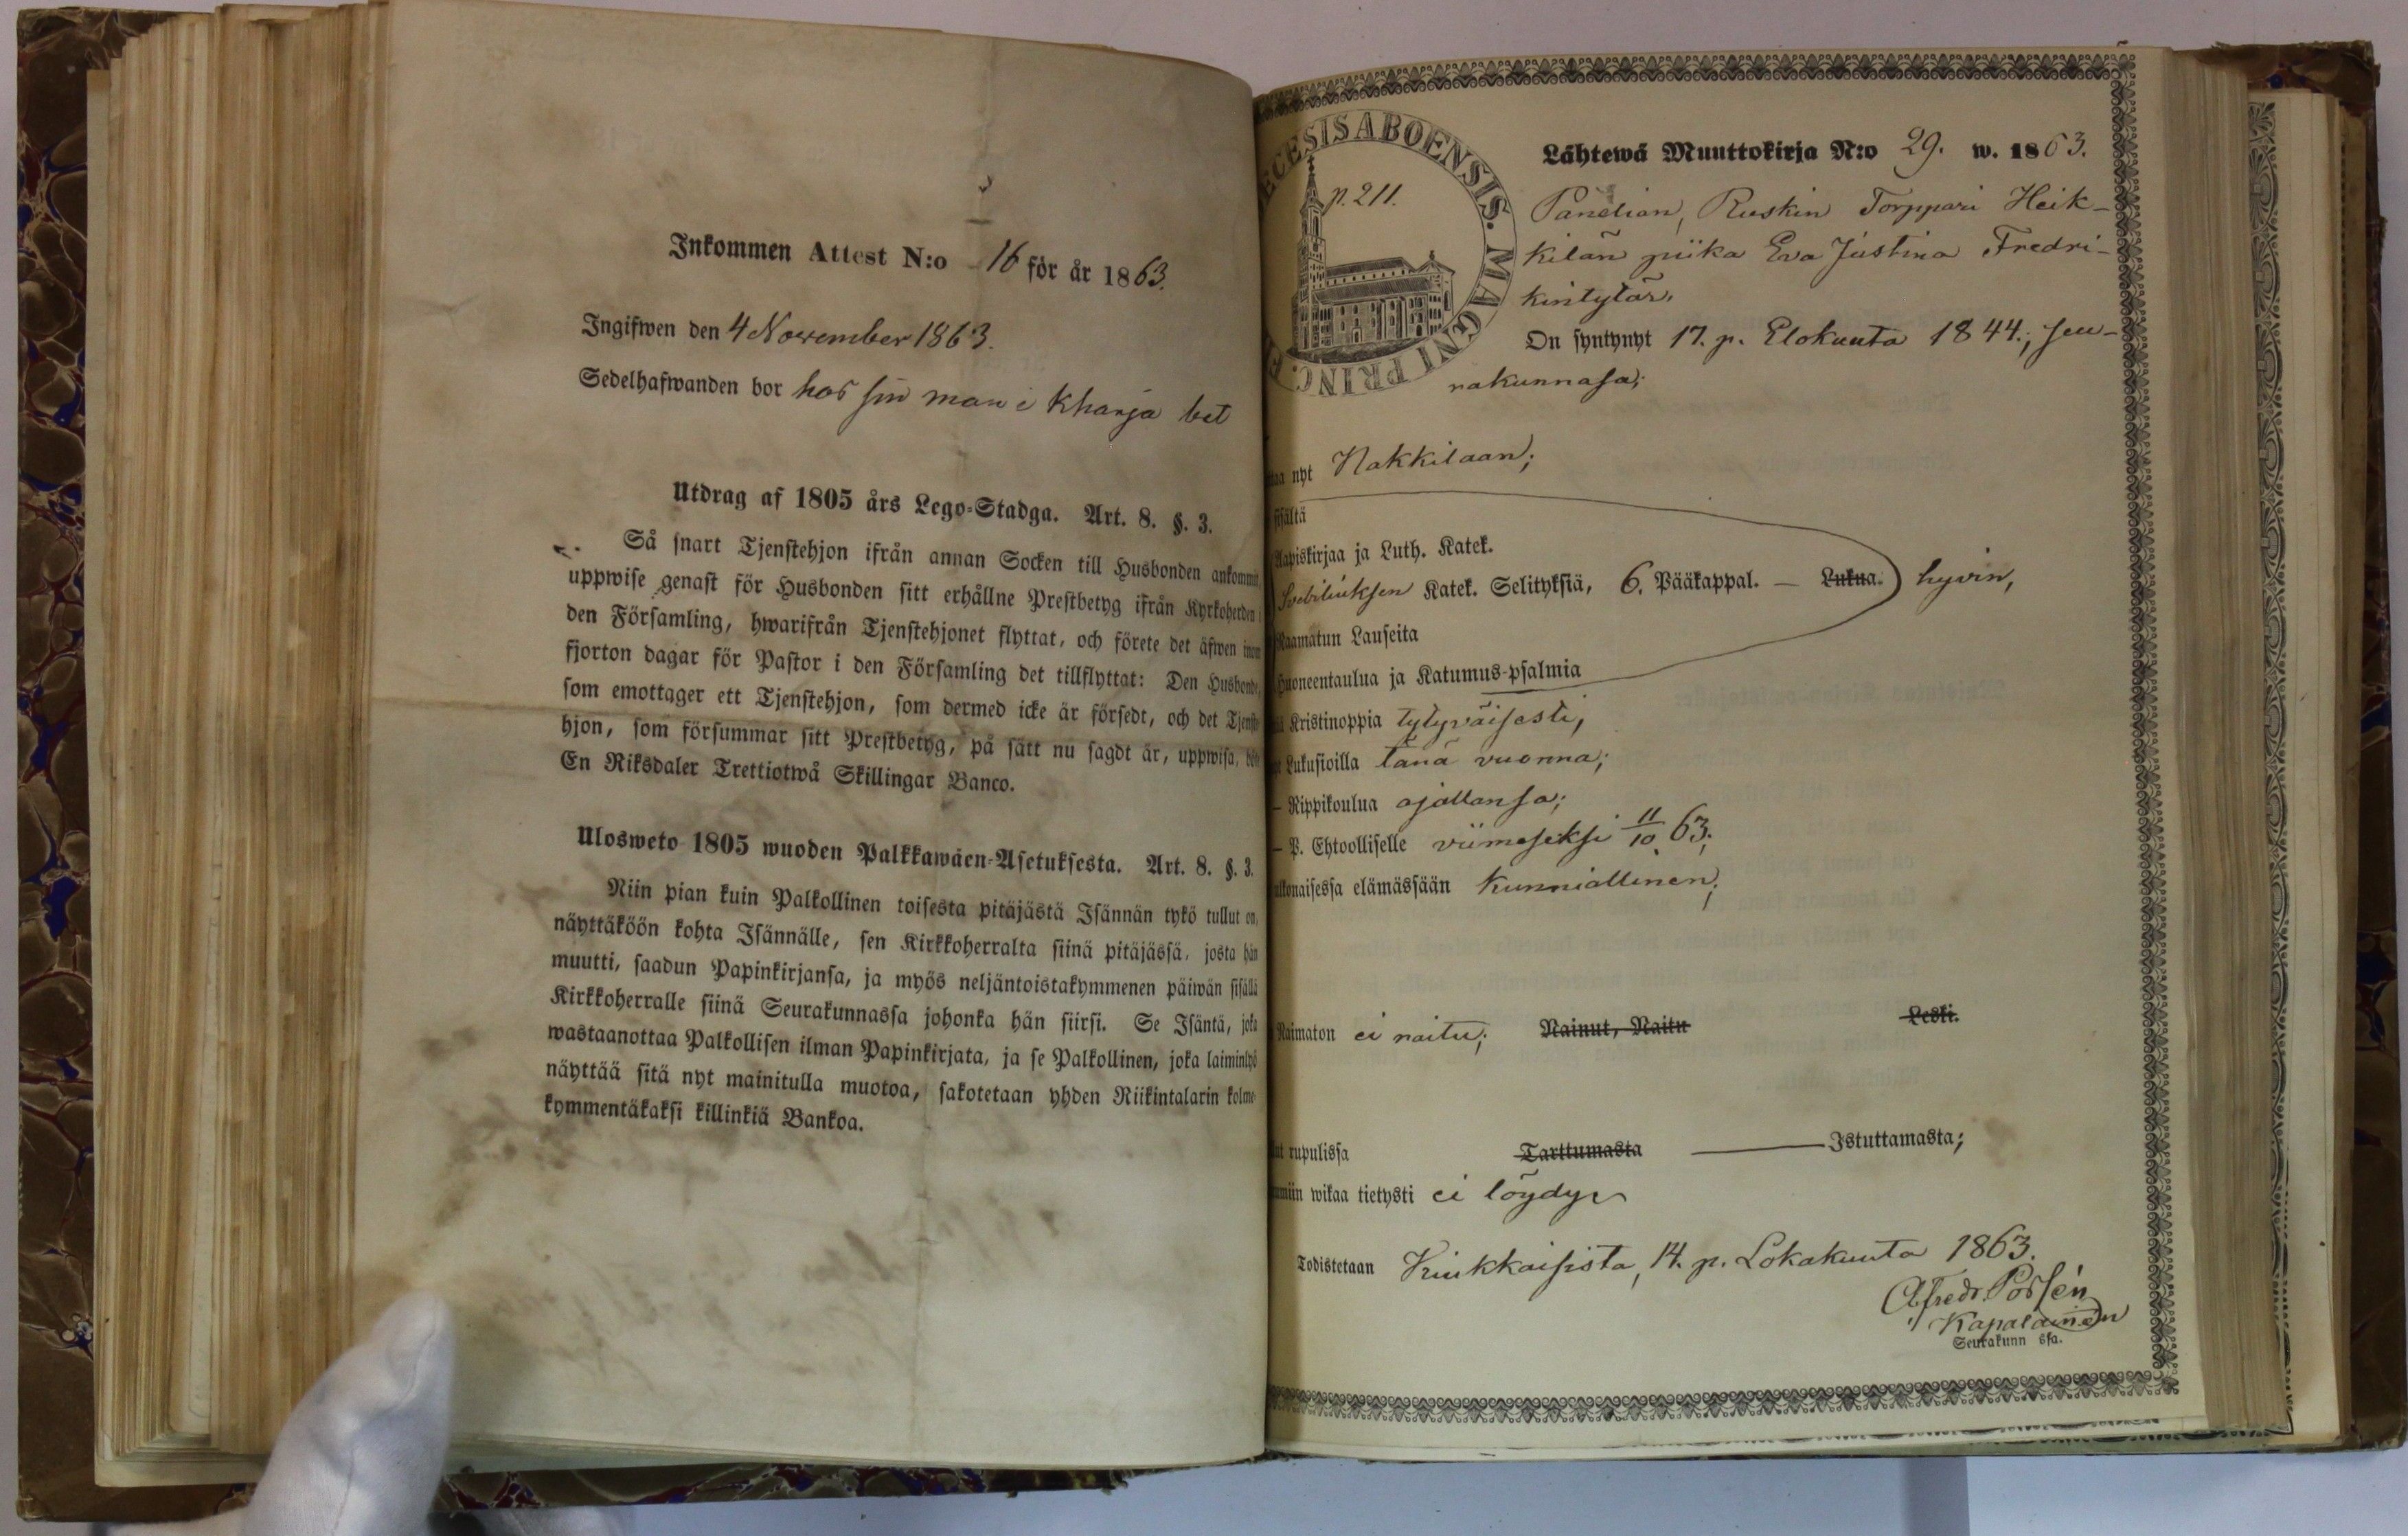 Inkommen Attest N:o 16 för år 1863.
Ingifwen den 4 November 1863.
Sedelhafwanden bor hos sin man i Kharja bet
Utdrag af 1805 års Lego-Stadga. Art. 8. §. 3.
Så snart Tjenstehjon ifrån annan Socken till Husbonden ankommit,
uppwise genast för Husbonden sitt erhållne Prestbetyg ifrån Kyrkoherden i
den Församling, hwarifrån Tjenstehjonet flyttat, och förete det äfwen inom
fjorton dagar för Pastor i den Församling det tillflyttat: Den Husbonde,
som emottager ett Tjenstehjon, som dermed icke är försedt, och det Tjenste-
hjon, som försummar sitt Prestbetyg, på sätt nu sagdt är, uppwisa, böte
En Riksdaler Trettiotwå Skillingar Banco.
Ulosweto 1805 wuoden Palkkawäen-Asetuksesta. Art. 8. §. 3.
Niin pian kuin Palkollinen toisesta pitäjästä Isännän tykö tullut on,
näyttäköön kohta Isännälle, sen Kirkkoherralta siinä pitäjässä, josta hän
muutti, saadun Papinkirjansa, ja myös neljäntoistakymmenen päiwän sisällä
Kirkkoherralle siinä Seurakunnassa johonka hän siirsi. Se Isäntä, joka
wastaanottaa Palkollisen ilman Papinkirjata, ja se Palkollinen, joka laiminlyö
näyttää sitä nyt mainitulla muotoa, sakotetaan yhden Riikintalarin kolme-
kymmentäkaksi killinkiä Bankoa.
ECESIS ABOENSIS. MAGNI PRINC. F
p. 211.
Lähtewä Muuttokirja N:o 29. w. 1863.
Panelian, Ruskin Torppari Heik-
kilän piika Eva Justina Fredri-
kintytär,
On syntynyt 17. p. Elokuuta 1844., seu-
rakunnasa;
nyt Nakkilaan;
sisältä
Aapiskirjaa ja Luth. Katek.
Svebiliuksen Katek. Selityksiä, 6. Pääkappal. — Lukua. hyvin,
Raamatun Lauseita
Huoneentaulua ja Katumus-psalmia
Kristinoppia tytyväisesti,
Lukusioilla tänä vuonna;
— Rippikoulua ajallansa;
— P. Ehtoolliselle viimeseksi 11/10 63;
ulkonaisessa elämässään kunniallinen;
Naimaton ei naitu; Nainut, Naitu Leski.
rupulissa Tarttumasta Istuttamasta;
wikaa tietysti ei löydy
Todistetaan Kiukkaisista, 14. p. Lokakuuta 1863.
Alfredr. Porsén
Kapalainen
Seurakunn ssa.